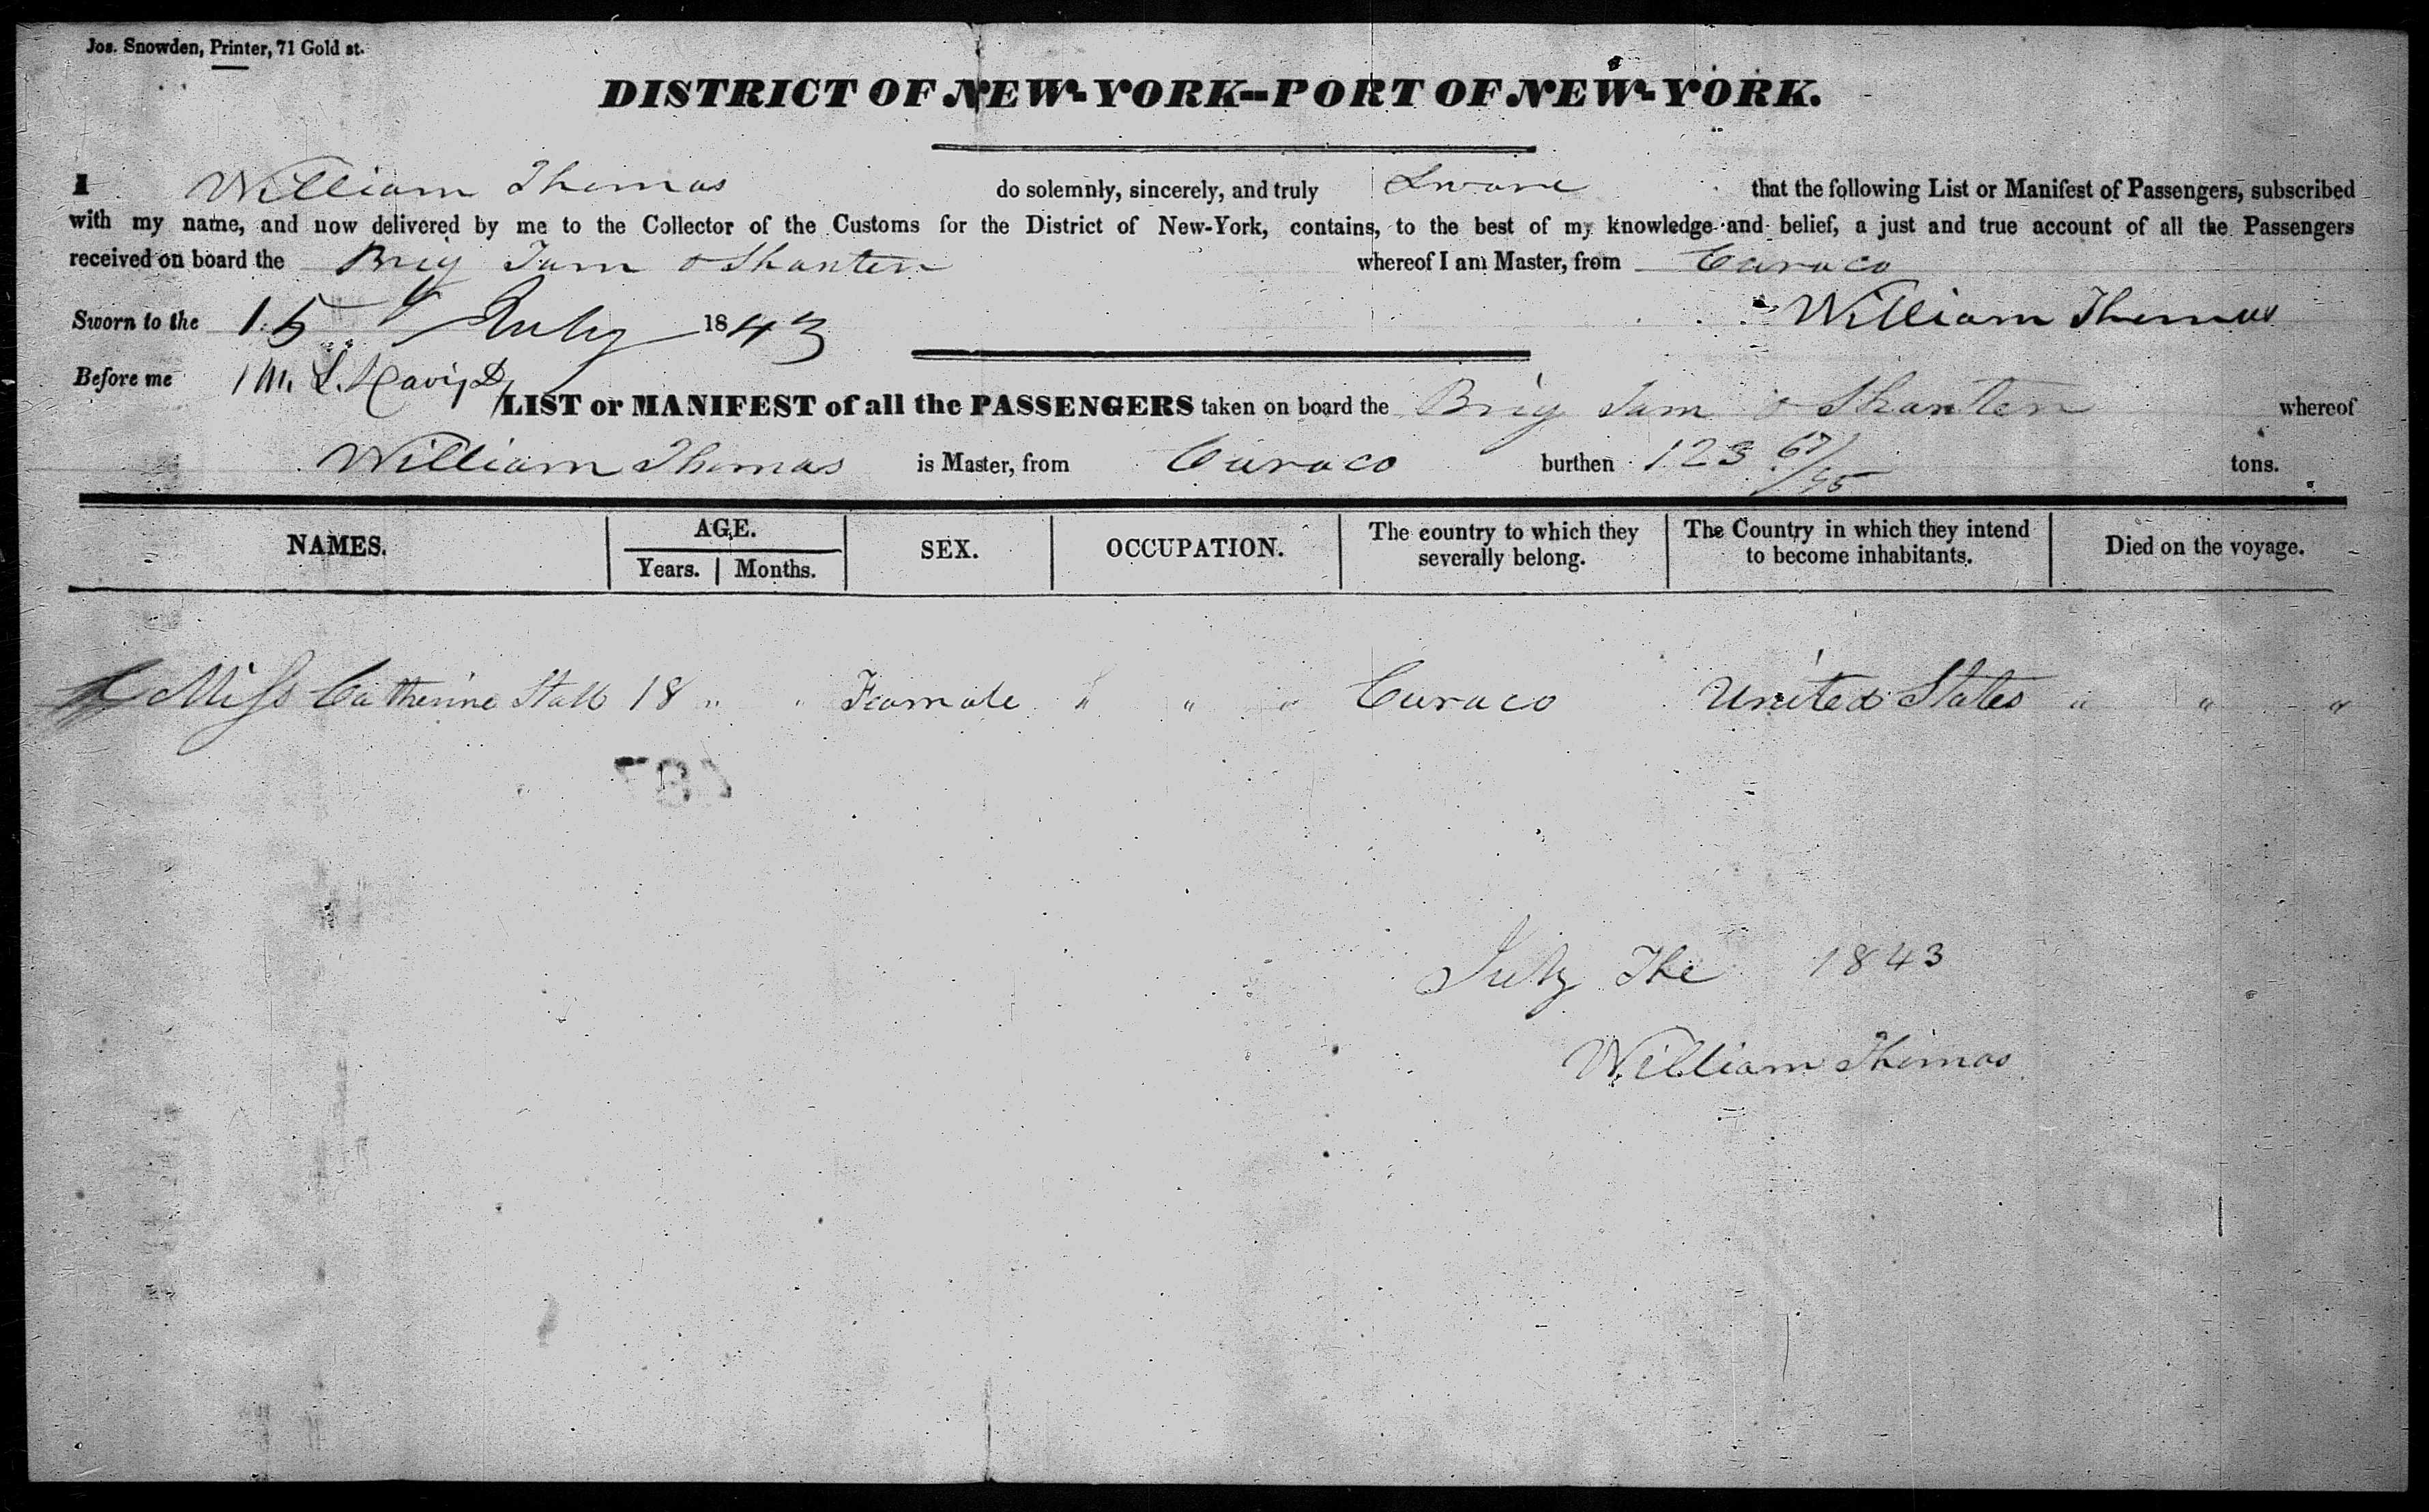 Jos. Snowden, Printer, 71 Gold st.
DISTRICT OF NEW-YORK--PORT OF NEW-YORK.
I William Thomas do solemnly, sincerely, and truly Sware that the following List or Manifest of Passengers, subscribed
with my name, and now delivered by me to the Collector of the Customs for the District of New-York, contains, to the best of my knowledge and belief, a just and true account of all the Passengers
received on board the Brig Tam o Shanter whereof I am Master, from Curaco
Sworn to the 15th July 1843 William Thomas
Before me
LIST or MANIFEST of all the PASSENGERS taken on board the Brig Tam o Shanter whereof
William Thomas is Master, from Curaco burthen 123 67/95 tons.
NAMES. AGE. SEX. OCCUPATION. The country to which they severally belong. The Country in which they intend to become inhabitants. Died on the voyage.
Years. Months.
Miss Catherine 18 " " Female " " " Curaco United States " " "
July The 1843
William Thomas